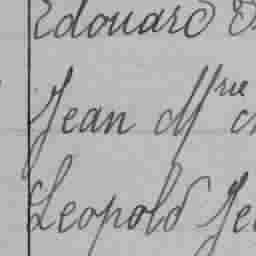 Edouard
Jean Mrie
Leopold Je